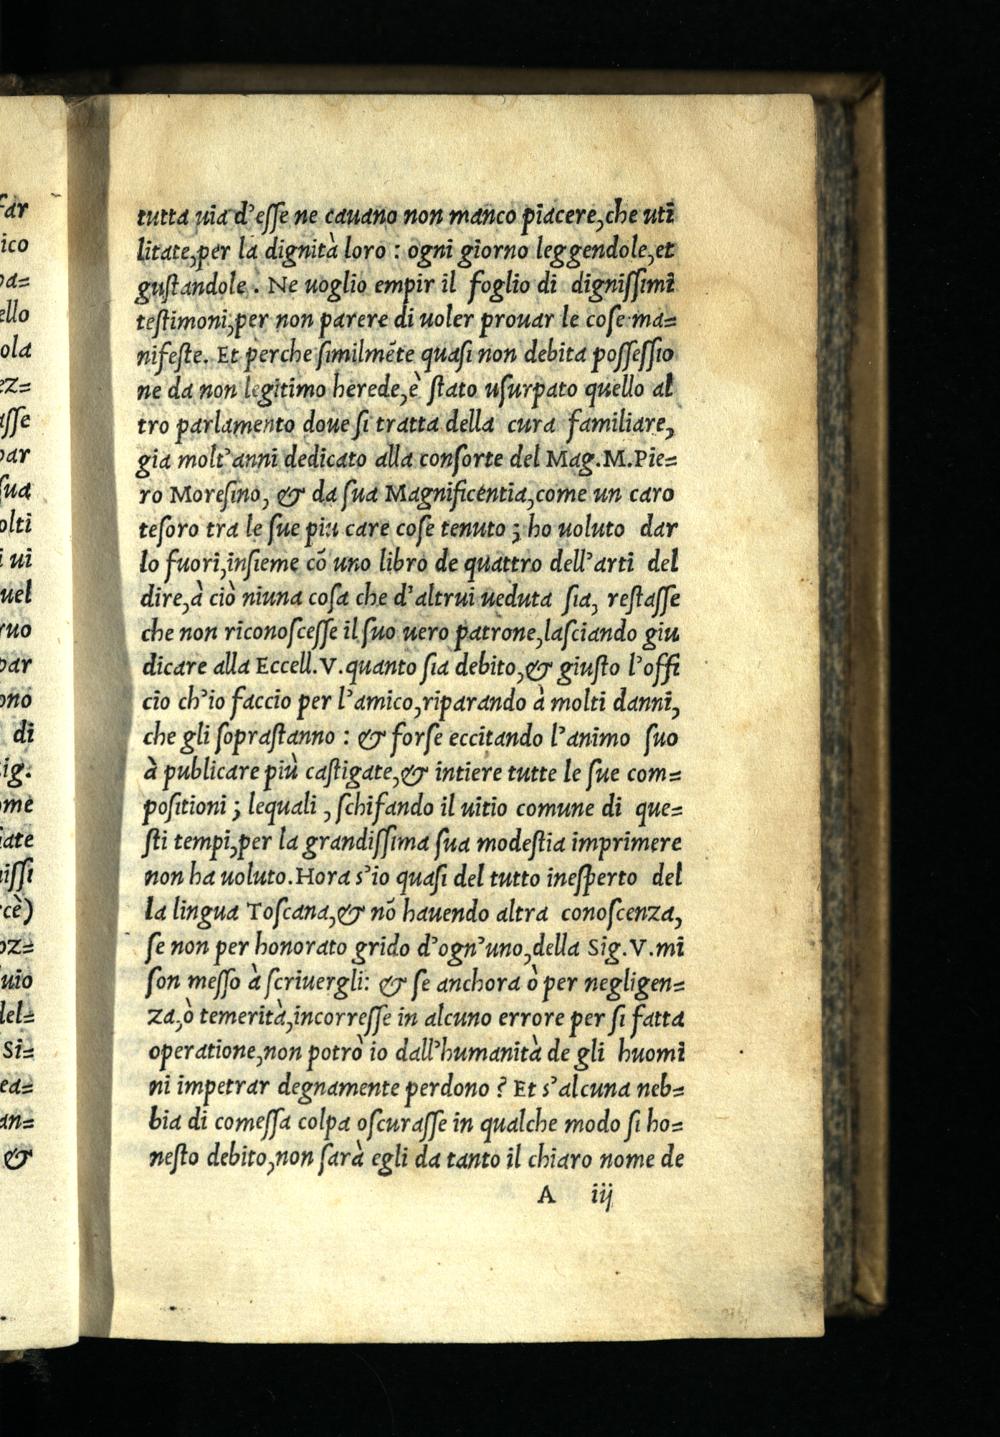 tutta uia d'esse ne cauano non manco piacere,che uti
litate,per la dignità loro : ogni giorno leggendole,et
gustandole . Ne uoglio empir il foglio di dignissimi
testimoni,per non parere di uoler prouar le cose ma=
nifeste. Et perche similmēte quasi non debita possessio
ne da non legitimo herede,è stato usurpato quello al
tro parlamento doue si tratta della cura familiare,
gia molt'anni dedicato alla consorte del Mag.M.Pie=
ro Moresino, & da sua Magnificentia,come un caro
tesoro tra le sue piu care cose tenuto ; ho uoluto dar
lo fuori,insieme cō uno libro de quattro dell'arti del
dire,à ciò niuna cosa che d'altrui ueduta sia, restasse
che non riconoscesse il suo uero patrone,lasciando giu
dicare alla Eccell.V.quanto sia debito,& giusto l'offi
cio ch'io faccio per l'amico,riparando à molti danni,
che gli soprastanno : & forse eccitando l'animo suo
à publicare più castigate,& intiere tutte le sue com=
positioni ; lequali , schifando il uitio comune di que=
sti tempi,per la grandissima sua modestia imprimere
non ha uoluto.Hora s'io quasi del tutto inesperto del
la lingua Toscana,& nō hauendo altra conoscenza,
se non per honorato grido d'ogn'uno,della Sig.V.mi
son messo à scriuergli: & se anchora ò per negligen=
za,ò temerità,incorresse in alcuno errore per si fatta
operatione,non potrò io dall'humanità de gli huomi
ni impetrar degnamente perdono ? Et s'alcuna neb=
bia di comessa colpa oscurasse in qualche modo si ho=
nesto debito,non sarà egli da tanto il chiaro nome de
A iij